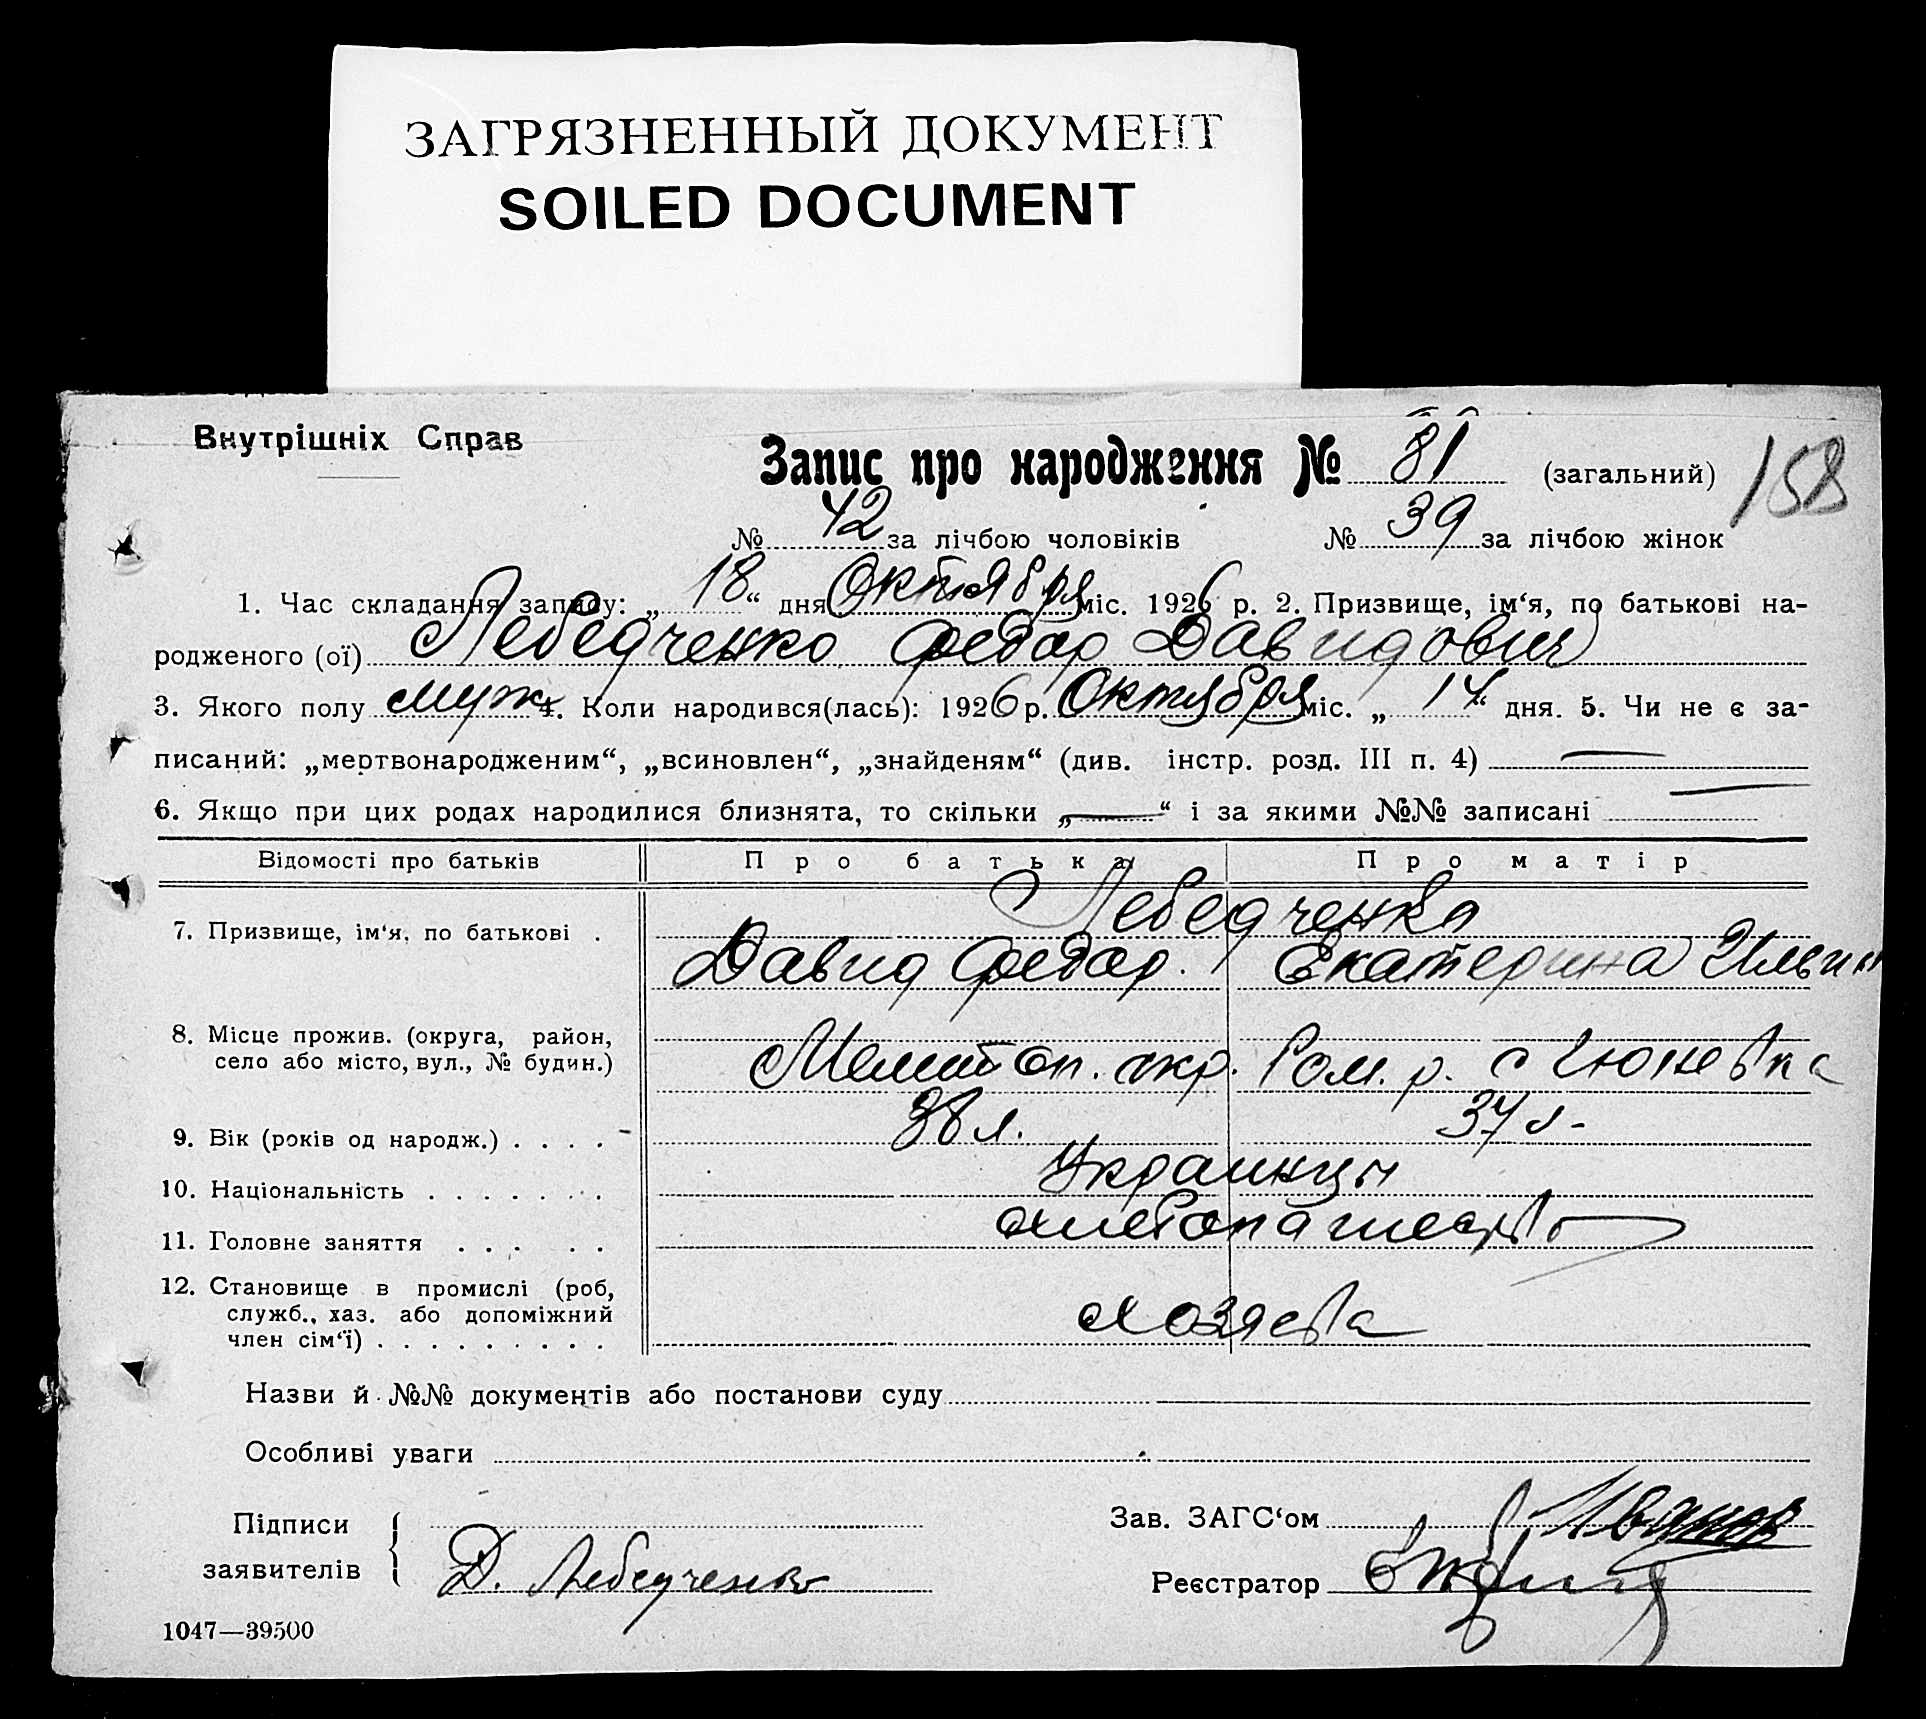 ЗАГРЯЗНЕННЫЙ ДОКУМЕНТ
SOILED DOCUMENT
Внутрішніх Справ
Запис про народження № 81 (загальний) 158
№ 42 за лічбою чоловіків № 39 за лічбою жінок
1. Час складання запису: „18“ дня Октября міс. 1926 р. 2. Призвище, ім‘я, по батькові на-
родженого (ої) Лебедченко Федор Давидович
3. Якого полу муж 4. Коли народився(лась): 1926 р. Октября міс. „14“ дня. 5. Чи не є за-
писаний: „мертвонародженим“, „всиновлен“, „знайденям“ (див. інстр. розд. III п. 4) —
6. Якщо при цих родах народилися близнята, то скільки „—“ і за якими №№ записані —
Відомості про батьків Про батька Про матір
Лебедченко
7. Призвище, ім‘я, по батькові .
Давид Федор. Екатерина Ильин
8. Місце прожив. (округа, район,
село або місто, вул., № будин.)
Мелитоп. окр. Ром. р. с
9. Вік (років од народж.) . . . . 38 л. 37 л.
10. Національність . . . . . . . Украинцы
11. Головне заняття . . . . . хлебопашество
12. Становище в промислі (роб,
служб., хаз. або допоміжний
член сім‘ї) . . . . . . . . . хозяева
Назви й №№ документів або постанови суду
Особливі уваги
Підписи
заявителів
Д. Лебедченко
Зав. ЗАГС‘ом Иванов
Реєстратор
1047—39500